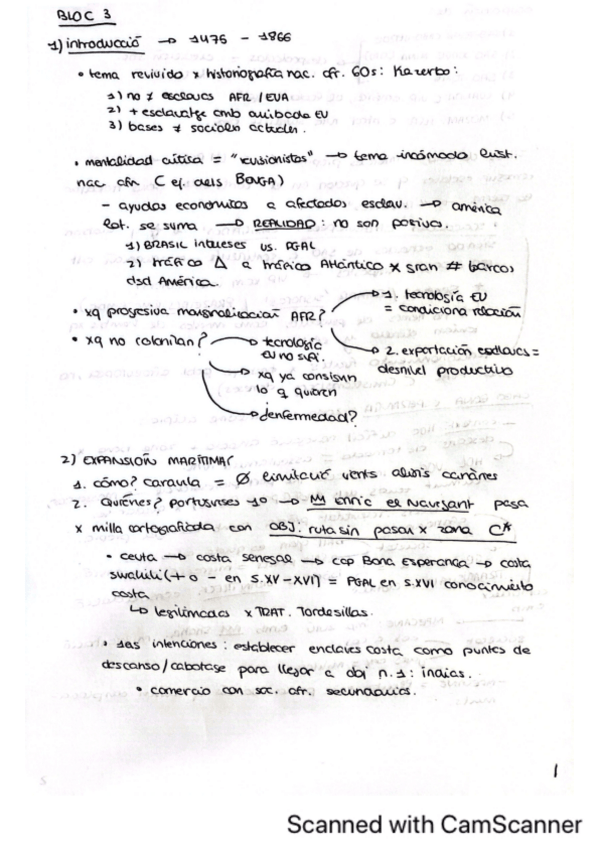 BLOC 3
1) introducció → 1475 - 1866
• tema revivido x historiografía nac. afr. 60s: Kazerbo:
1) no ≠ esclavos AFR/EUA
2) + esclavatge amb arribada EU
3) bases ≠ sociales actuales.
• mentalidad crítica = "exclusionistas" → tema incómodo hist.
nac afr C ej. dels BONGA)
- ayudas económicas a afectados esclav. → américa
lat. se suma → REALIDAD: no son positivas.
1) BRASIL intereses vs. PGAL
2) tráfico Δ a tráfico Atlántico x gran # barcos
dsd América.
• xq progresiva marginalización AFR?
→ 1. tecnología EU
= condiciona relación
→ 2. exportación esclavos =
desnivel productivo
• xq no colonizan?
→ tecnología
EU no sufi.
→ xq ya consiguen
lo q quieren
→ ¿enfermedad?
2) EXPANSIÓN MARÍTIMA
1. cómo? caravela = Ø limitació vents alisis canàries
2. quiénes? portugueses 1º → M enric el Navegant pasa
x milla cartografiada con OBJ: ruta sin pasar x zona C*
• ceuta → costa senegal → cap Bona Esperança → costa
swahili (+ o - en S.XV-XVI) = PGAL en S.XVI conocimiento
costa
↳ legitimadas x TRAT. Tordesillas.
• 1as intenciones: establecer enclaves costa como puntos de
descanso/cabotaje para llegar a obj n.1: indias.
• comercio con soc. afr. secundarias.
1
Scanned with CamScanner